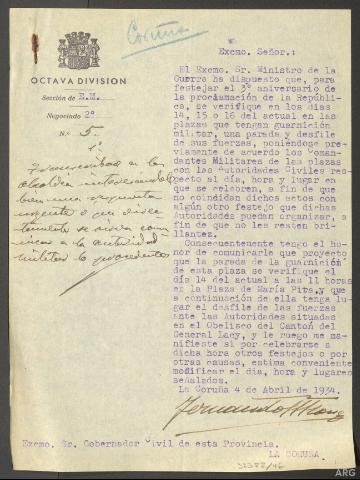 Coruña
OCTAVA DIVISION
Sección de E.M.
Negociado 2º
N.º 5
Excmo. Señor.:
El Excmo. Sr. Ministro de la
Guerra ha dispuesto que, para
festejar el 3º aniversario de
la proclamación de la Repúbli-
ca, se verifique en los dias
14, 15 o 16 del actual en las
plazas que tengan guarnición
militar, una parada y desfile
de sus fuerzas, poniéndose pre-
viamente de acuerdo los Coman-
dantes Militares de las plazas
con las Autoridades Civiles res-
pecto al dia, hora y lugar en
que se celebren, a fin de que
no coincidan dichos actos con
algún otro festejo que dichas
Autoridades puedan organizar, a
fin de que no les resten bri-
llantez.
Consecuentemente tengo el ho-
nor de comunicarle que proyecto
que la parada de la guarnición
de esta plaza se verifique el
dia 14 del actual a las 11 horas
en la Plaza de María Pita, y que
a continuación de ella tenga lu-
gar el desfile de las fuerzas
ante las Autoridades situadas
en el Obelisco del Cantón del
General Lacy, y le ruego me ma-
nifieste si por celebrarse a
dicha hora otros festejos o por
otras causas, estima conveniente
modificar el dia, hora y lugares
señalados.
La Coruña 4 de Abril de 1934.
Excmo. Sr. Gobernador Civil de esta Provincia.
LA CORUÑA
ARG